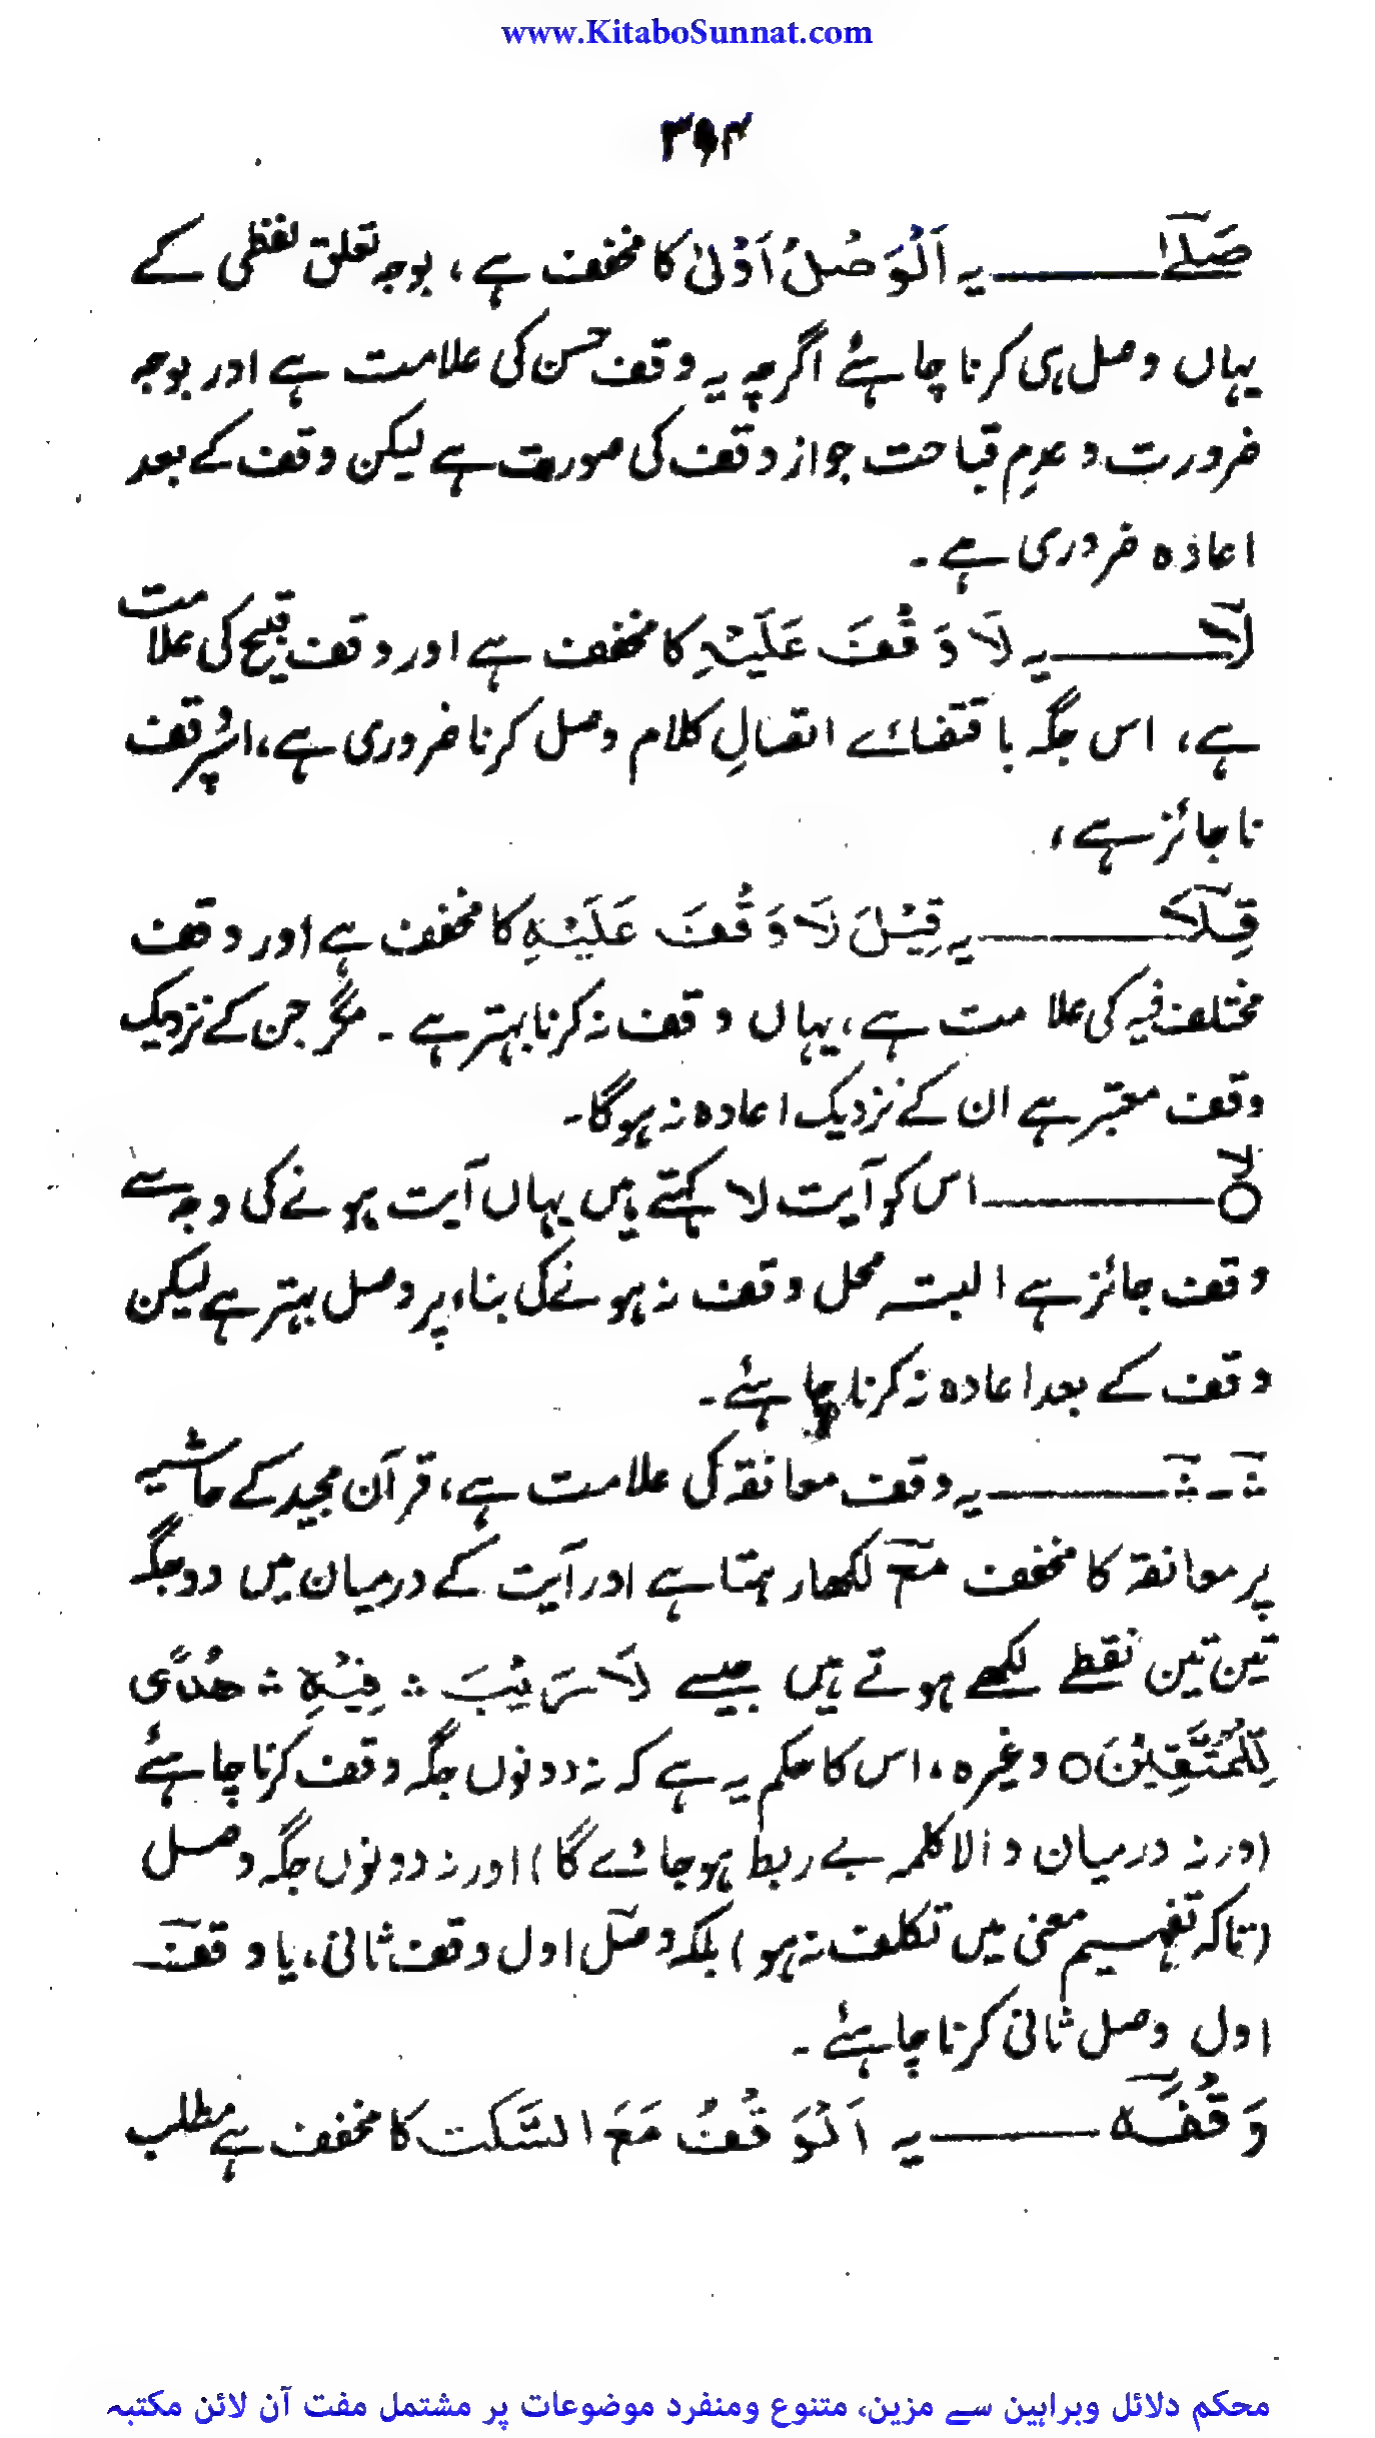 www.KitaboSunnat.com
۳۹۴
صَلےٰ ـــــ یہ اَلْوَصْلُ اَوْلیٰ کا مخفف ہے، بوجہ تعلق لفظی کے
یہاں وصل ہی کرنا چاہئے اگرچہ یہ وقف حسن کی علامت ہے اور بوجہ
ضرورت و عدمِ قباحت جواز وقف کی صورت ہے لیکن وقف کے بعد
اعادہ ضروری ہے۔
لآ ـــــ یہ لَا وَقْفَ عَلَیْہِ کا مخفف ہے اور وقف قبیح کی علامت
ہے، اس جگہ باقتضائے اتصالِ کلام وصل کرنا ضروری ہے، اسپر وقف
ناجائز ہے،
قِلَا ـــــ یہ قِیْلَ لَا وَقْفَ عَلَیْہِ کا مخفف ہے اور وقف
مختلف فیہ کی علامت ہے، یہاں وقف نہ کرنا بہتر ہے۔ مگر جن کے نزدیک
وقف معتبر ہے ان کے نزدیک اعادہ نہ ہوگا۔
لا ○ ـــــ اس کو آیت لا کہتے ہیں یہاں آیت ہونے کی وجہ سے
وقف جائز ہے البتہ محل وقف نہ ہونے کی بناء پر وصل بہتر ہے لیکن
وقف کے بعد اعادہ نہ کرنا چاہئے۔
∴ - ∴ ـــــ یہ وقف معانقہ کی علامت ہے، قرآن مجید کے حاشیہ
پر معانقہ کا مخفف مع لکھا رہتا ہے اور آیت کے درمیان میں دو جگہ
تین تین نقطے لکھے ہوتے ہیں جیسے لَا رَیْبَ ∴ فِیْہِ ∴ ھُدًی
لِّلْمُتَّقِیْنَ ○ وغیرہ، اس کا حکم یہ ہے کہ نہ دونوں جگہ وقف کرنا چاہئے
(ورنہ درمیان والا کلمہ بے ربط ہو جائے گا) اور نہ دونوں جگہ وصل
(تاکہ تفہیم معنی میں تکلف نہ ہو) بلکہ وصل اول وقف ثانی، یا وقف
اول وصل ثانی کرنا چاہئے۔
وَقْفَہ ـــــ یہ اَلْوَقْفُ مَعَ السَّکت کا مخفف ہے مطلب
محکم دلائل وبراہین سے مزین، متنوع ومنفرد موضوعات پر مشتمل مفت آن لائن مکتبہ